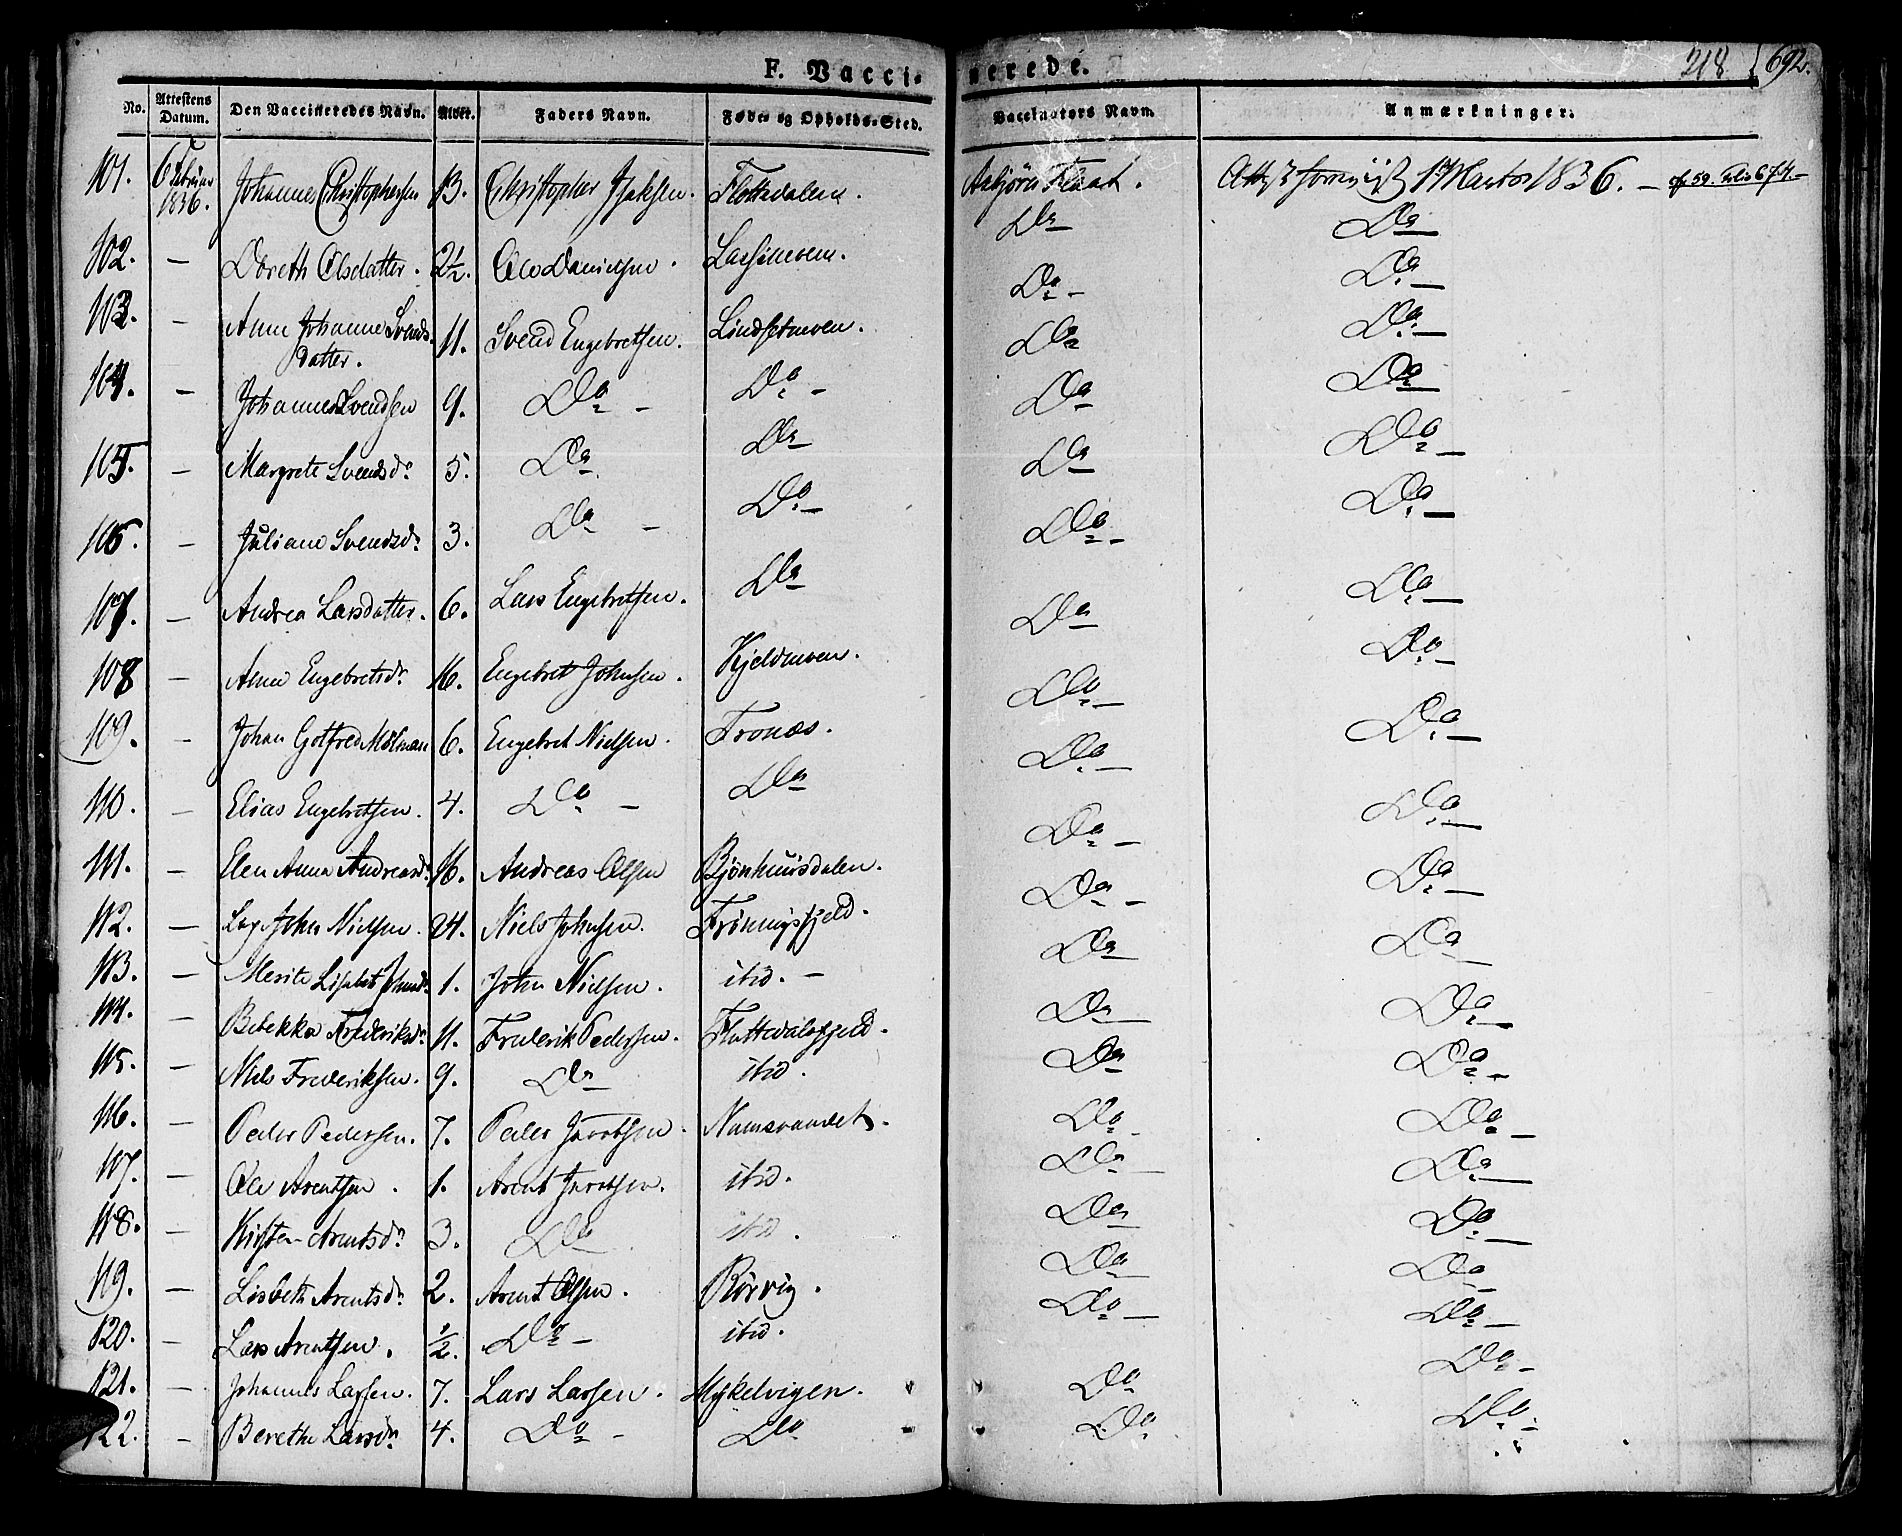 F. Vaccinerede. 218 692.
No. Attestens Datum. Den Vaccineredes Navn. Alder. Faders Navn. Føde- og Opholds-Sted. Vaccinators Navn. Anmærkninger.
101. 6 Februar 1836. Johannes Christophersen 13. Christopher Isaksen. Flottedalen. Asbjørn Fleat. 1 Martor 1836. —
102. — Doreth Olsdatter. 2½. Ole Danielsen. Do Do
103. — Anne Johanne Svends datter. 11. Svend Engebretsen. Lindsetmoen. Do — Do —
104. — Johannes Svendsen 9. Do — Do — Do Do —
105. — Margrete Svendsdr 5. Do Do Do Do
106. — Juliane Svendsdr 3. Do — Do — Do Do —
107. — Andrea Larsdatter. 6. Lars Engebretsen. Do Do — Do —
108 — Anne Engebretsdr 16. Engebret Johnsen. Kjeldmoen. Do Do —
109. — Johan Gotfred Molman 6. Engebret Nielsen. Tronæs. Do — Do —
110. — Elias Engebretsen. 4. Do — Do Do — Do —
111. — Elen Anna Andreasdr 16. Andreas Olsen Bjønhuusdalen. Do — Do —
112. — John Nielsen. 24. Niels Johnsen. Frøningsfjeld. Do — Do —
113. — Merite Lisabet Johnsdr 1. John Nielsen. ibid. — Do Do —
114. — Bebekka Frederiksdr 11. Frederik Pedersen. Flottedalsfjeld. Do — Do —
115. — Niels Frederiksen. 9. Do ibid. Do Do —
116. — Peder Pedersen. 7. Peder Jacobsen. Namsvandet. Do — Do —
117. — Ole Arentsen. 1. Arent Jacobsen. ibid. Do — Do —
118. — Kirsten Arentsdr 3. Do ibid. Do Do —
119. — Lisbeth Arentsdr 2. Arent Olsen. Rörvig. Do Do —
120. — Lars Arentsen. ½. Do — ibid. Do — Do —
121. — Johannes Larsen. 7. Lars Larsen. Mykelvigen. Do Do —
122. — Berethe Larsdr 4. Do — Do Do Do —